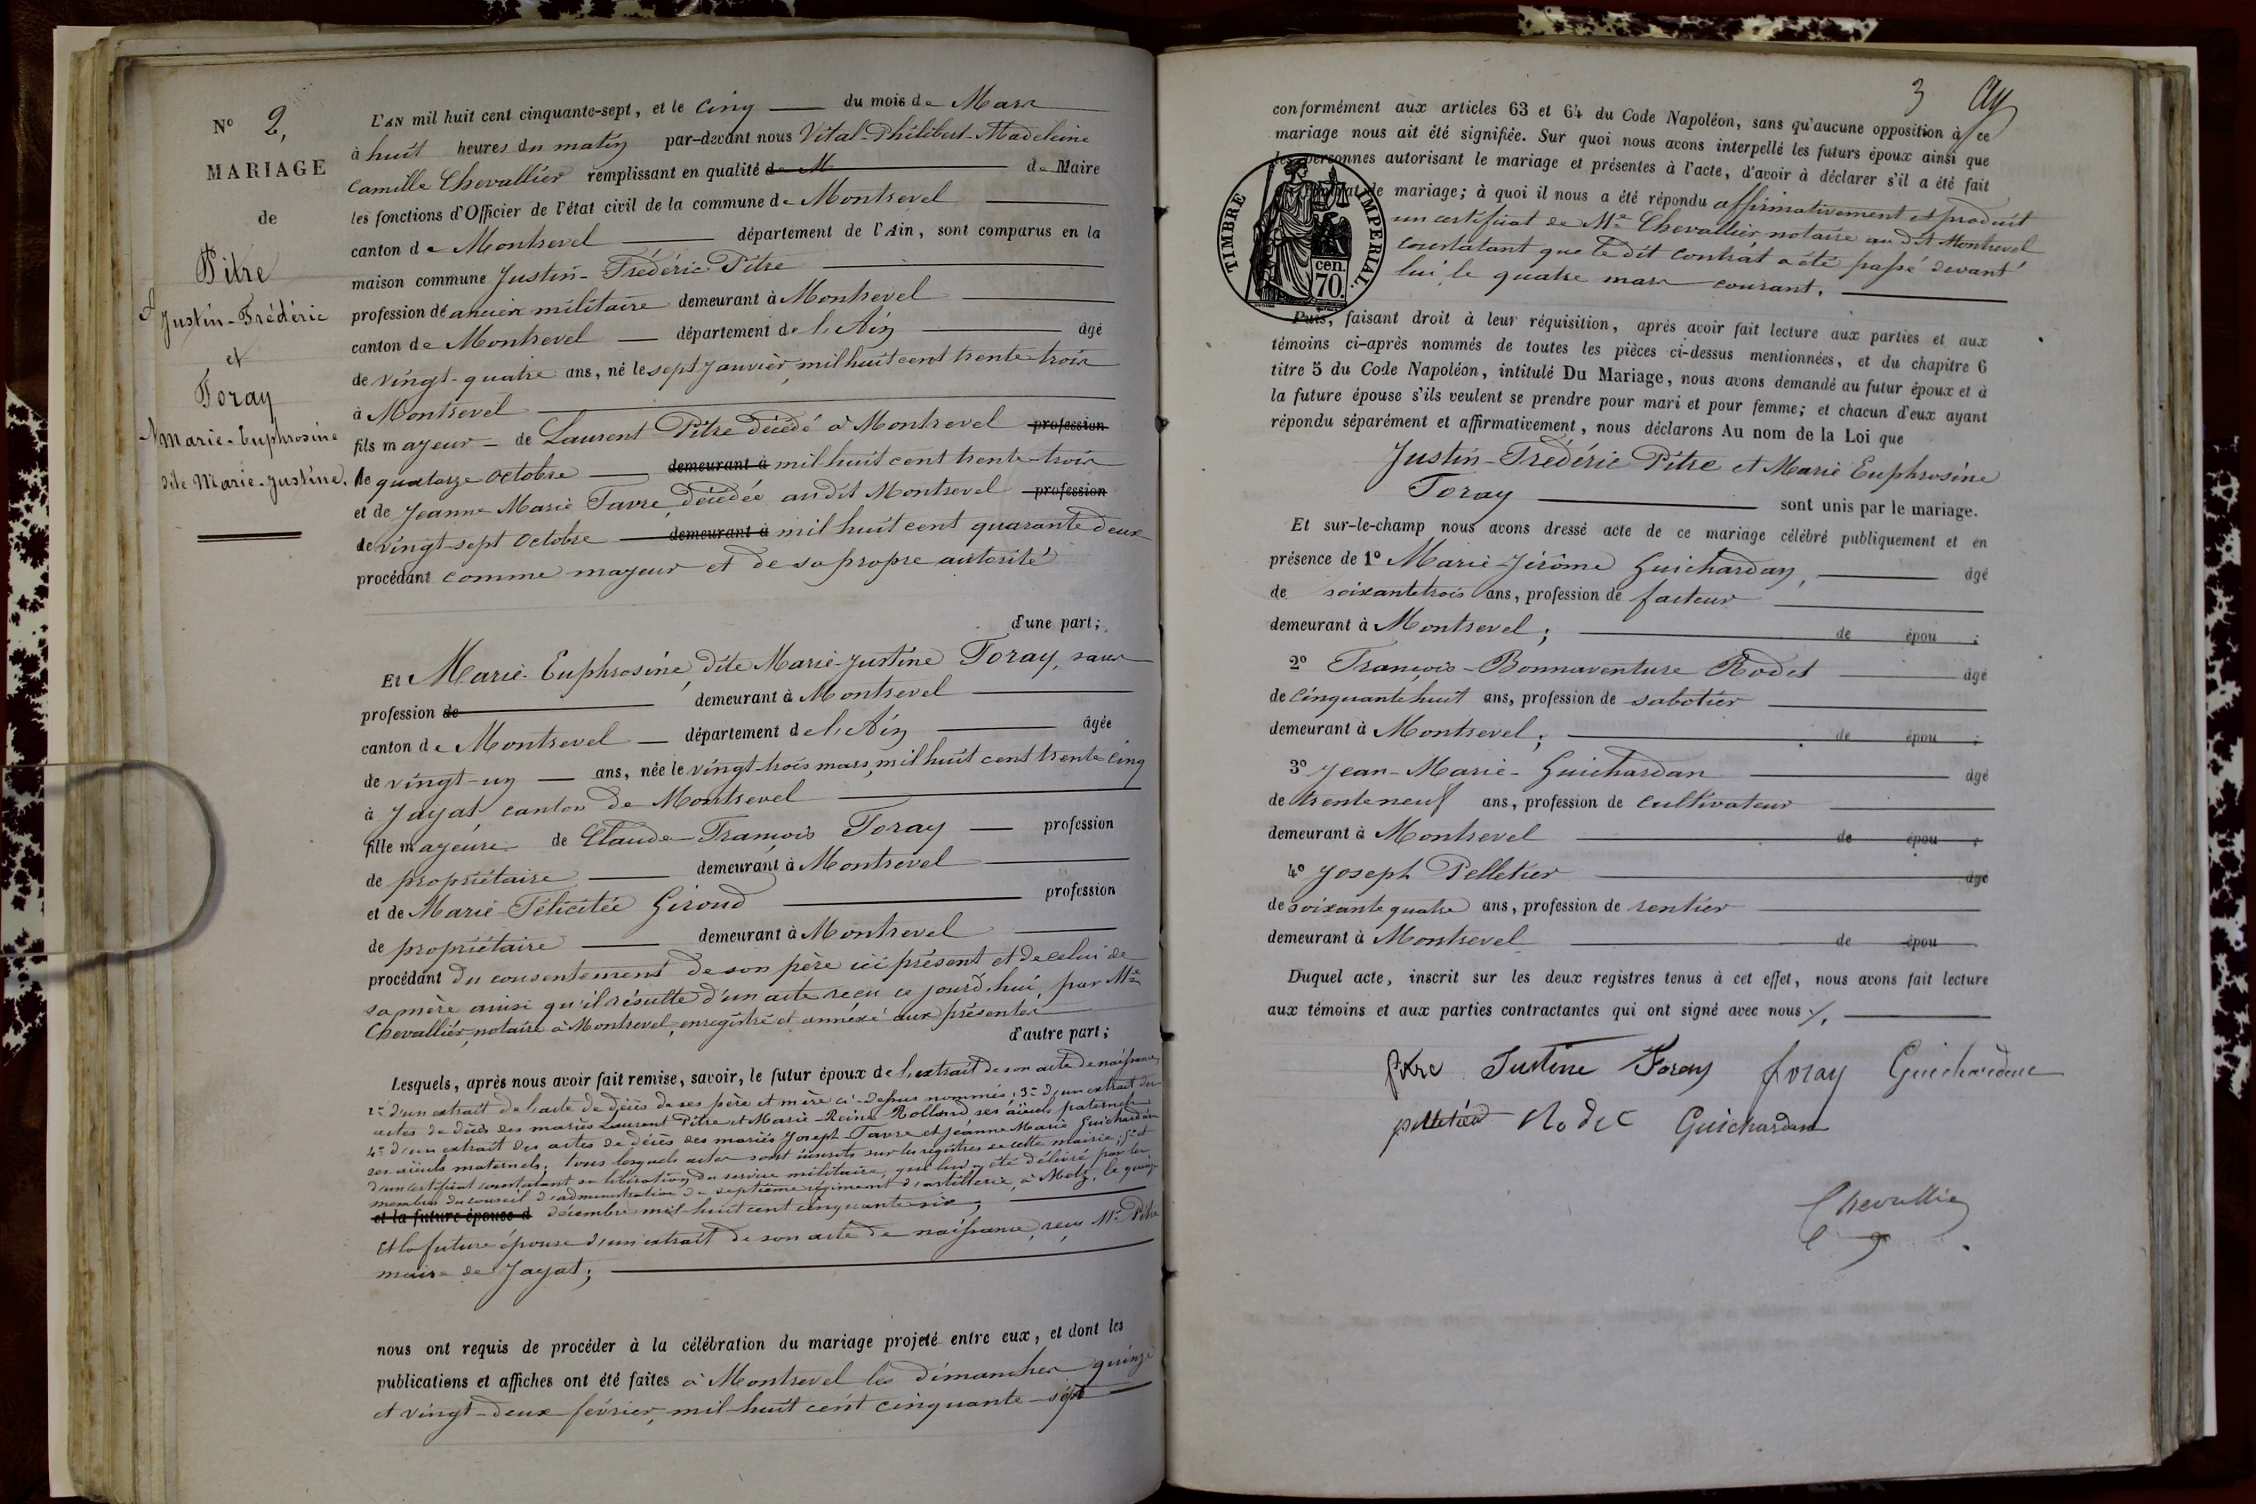 N° 2,
MARIAGE
de
Pitre
Justin-Frédéric
et
Foray
Marie-Euphrosine
dite Marie-Justine.
L'AN mil huit cent cinquante-sept, et le cinq du mois de Mars
à huit heures du matin par-devant nous Vital-Philibert-Madeleine
Camille Chevallier remplissant en qualité de M de Maire
les fonctions d'Officier de l'état civil de la commune de Montrevel
canton de Montrevel département de l'Ain, sont comparus en la
maison commune Justin-Frédéric Pitre
profession de ancien militaire demeurant à Montrevel
canton de Montrevel département de l'Ain âgé
de vingt-quatre ans, né le sept janvier, mil huit cent trente-trois
à Montrevel
fils majeur de Laurent Pitre décédé à Montrevel profession
le quatorze octobre demeurant à mil huit cent trente-trois
et de Jeanne Marie Favre, décédée audit Montrevel profession
de vingt-sept octobre demeurant à mil huit cent quarante deux
procédant comme mayeur et de sa propre autorité
d'une part;
Et Marie-Euphrosine, dite Marie-Justine Foray, sans
profession de demeurant à Montrevel
canton de Montrevel département de l'Ain âgée
de vingt-un ans, née le vingt-trois mars, mil huit cent trente-cinq
à Jayat, canton de Montrevel
fille mayeure de Claude-François Foray profession
de propriétaire demeurant à Montrevel
et de Marie-Félicitée Giroud profession
de propriétaire demeurant à Montrevel
procédant du consentement de son père ici présent et de celui de
sa mère ainsi qu'il résulte d'un acte reçu ce jourd'hui, par Me
Chevallier, notaire à Montrevel, enregistré et annéxé aux présentes
d'autre part;
Lesquels, après nous avoir fait remise, savoir, le futur époux de l'extrait de son acte de naissance,
2° d'un extrait de l'acte de décès de ses père et mère ci-dessus nommés; 3° d'un extrait des
actes de décès des mariés Laurent Pitre et Marie-Reine Rolland ses aïeuls paternels
4° d'un extrait des actes de décès des mariés Joseph Favre et Jeanne Marie Guichardan
ses aïeuls maternels; tous lesquels actes sont inscrits sur les registres de cette mairie; 5° et
d'un certificat constatant sa libération du service militaire, qui lui a été délivré par les
membres du conseil d'administration du septième régiment d'artillerie, à Metz, le quinze
et la future épouse d décembre mil huit cent cinquante six;
Et la future épouse d'un extrait de son acte de naissance, reçu Mr Pitre
maire de Jayat;
nous ont requis de procéder à la célébration du mariage projeté entre eux, et dont les
publications et affiches ont été faites à Montrevel les dimanches quinze
et vingt-deux février, mil huit cent cinquante-sept
3
conformément aux articles 63 et 64 du Code Napoléon, sans qu'aucune opposition à ce
mariage nous ait été signifiée. Sur quoi nous avons interpellé les futurs époux ainsi que
les personnes autorisant le mariage et présentes à l'acte, d'avoir à déclarer s'il a été fait
contrat de mariage; à quoi il nous a été répondu affirmativement et produit
un certificat de Me Chevallier notaire au dit Montrevel
constatant que le dit contrat a été passé devant
lui, le quatre mars courant.
TIMBRE IMPERIAL.
cen.
70.
Puis, faisant droit à leur réquisition, après avoir fait lecture aux parties et aux
témoins ci-après nommés de toutes les pièces ci-dessus mentionnées, et du chapitre 6
titre 5 du Code Napoléon, intitulé Du Mariage, nous avons demandé au futur époux et à
la future épouse s'ils veulent se prendre pour mari et pour femme; et chacun d'eux ayant
répondu séparément et affirmativement, nous déclarons Au nom de la Loi que
Justin-Frédéric Pitre et Marie Euphrosine
Foray sont unis par le mariage.
Et sur-le-champ nous avons dressé acte de ce mariage célébré publiquement et en
présence de 1° Marie-Jérôme Guichardan, âgé
de soixante trois ans, profession de facteur
demeurant à Montrevel; de épou ;
2° François-Bonnaventure Rodet âgé
de cinquante huit ans, profession de sabotier
demeurant à Montrevel; de épou ;
3° Jean-Marie-Guichardan âgé
de trente neuf ans, profession de cultivateur
demeurant à Montrevel de épou ;
4° Joseph Pelletier âgé
de soixante quatre ans, profession de rentier
demeurant à Montrevel de épou .
Duquel acte, inscrit sur les deux registres tenus à cet effet, nous avons fait lecture
aux témoins et aux parties contractantes qui ont signé avec nous
pitre Justine Foray foray Guichardan
pelletier Rodet Guichardan
Chevallier